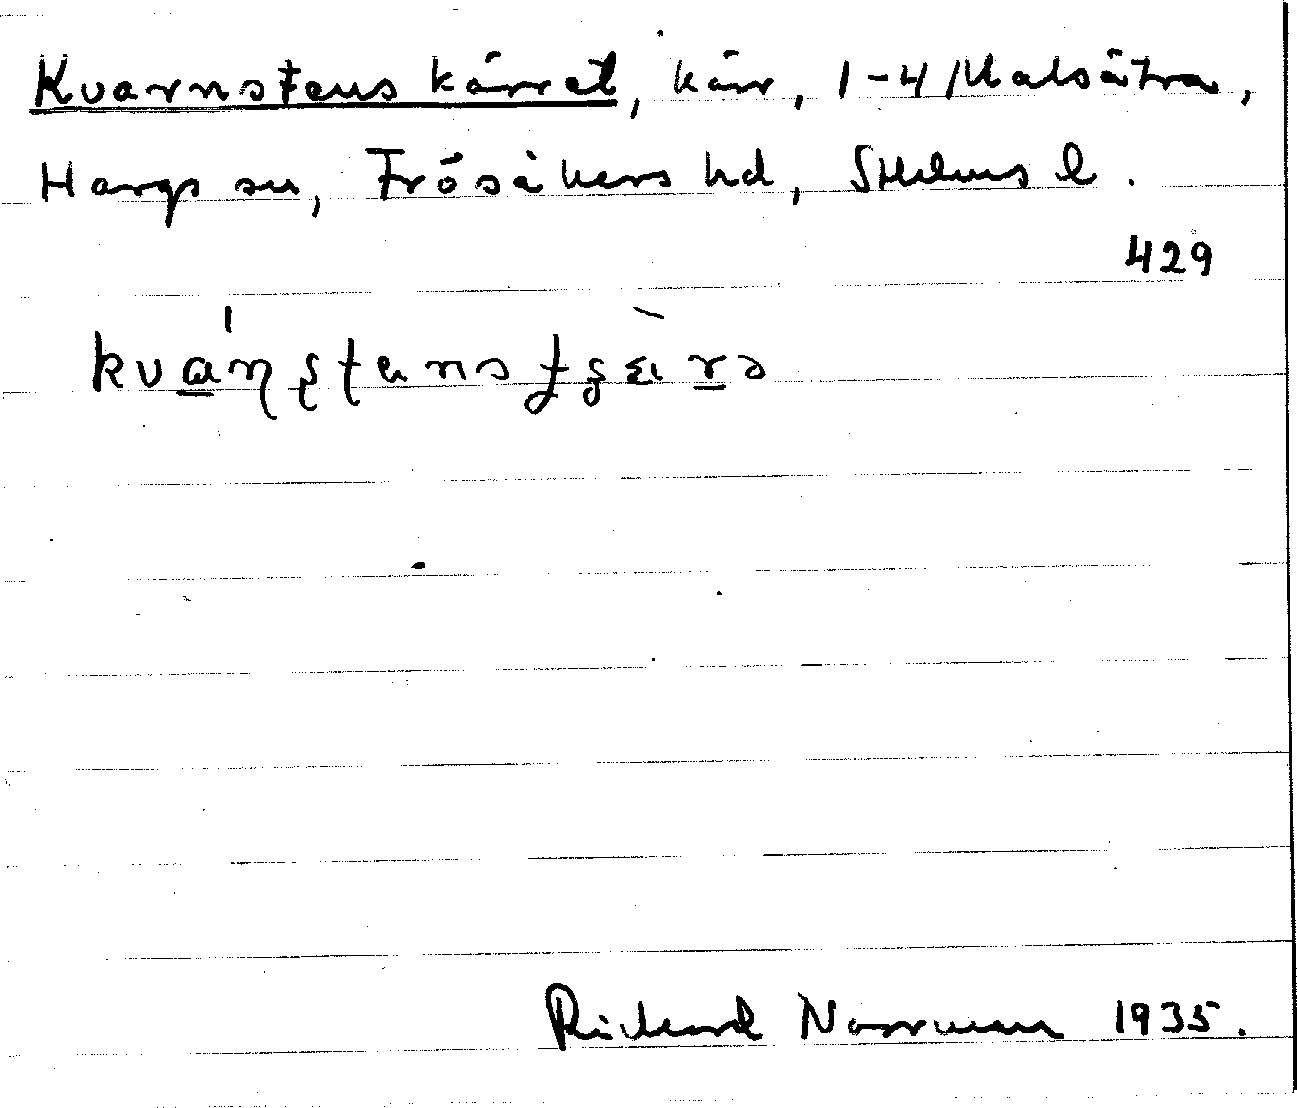 Kvarnstens kärret, kärr, 1-4 Malsätra,
Hargs sn, Frösåkers hd, Sthlms l.
429
kvɑ̲ɳʂʈenstʂɛr̲ə
Richard Norrman 1935.